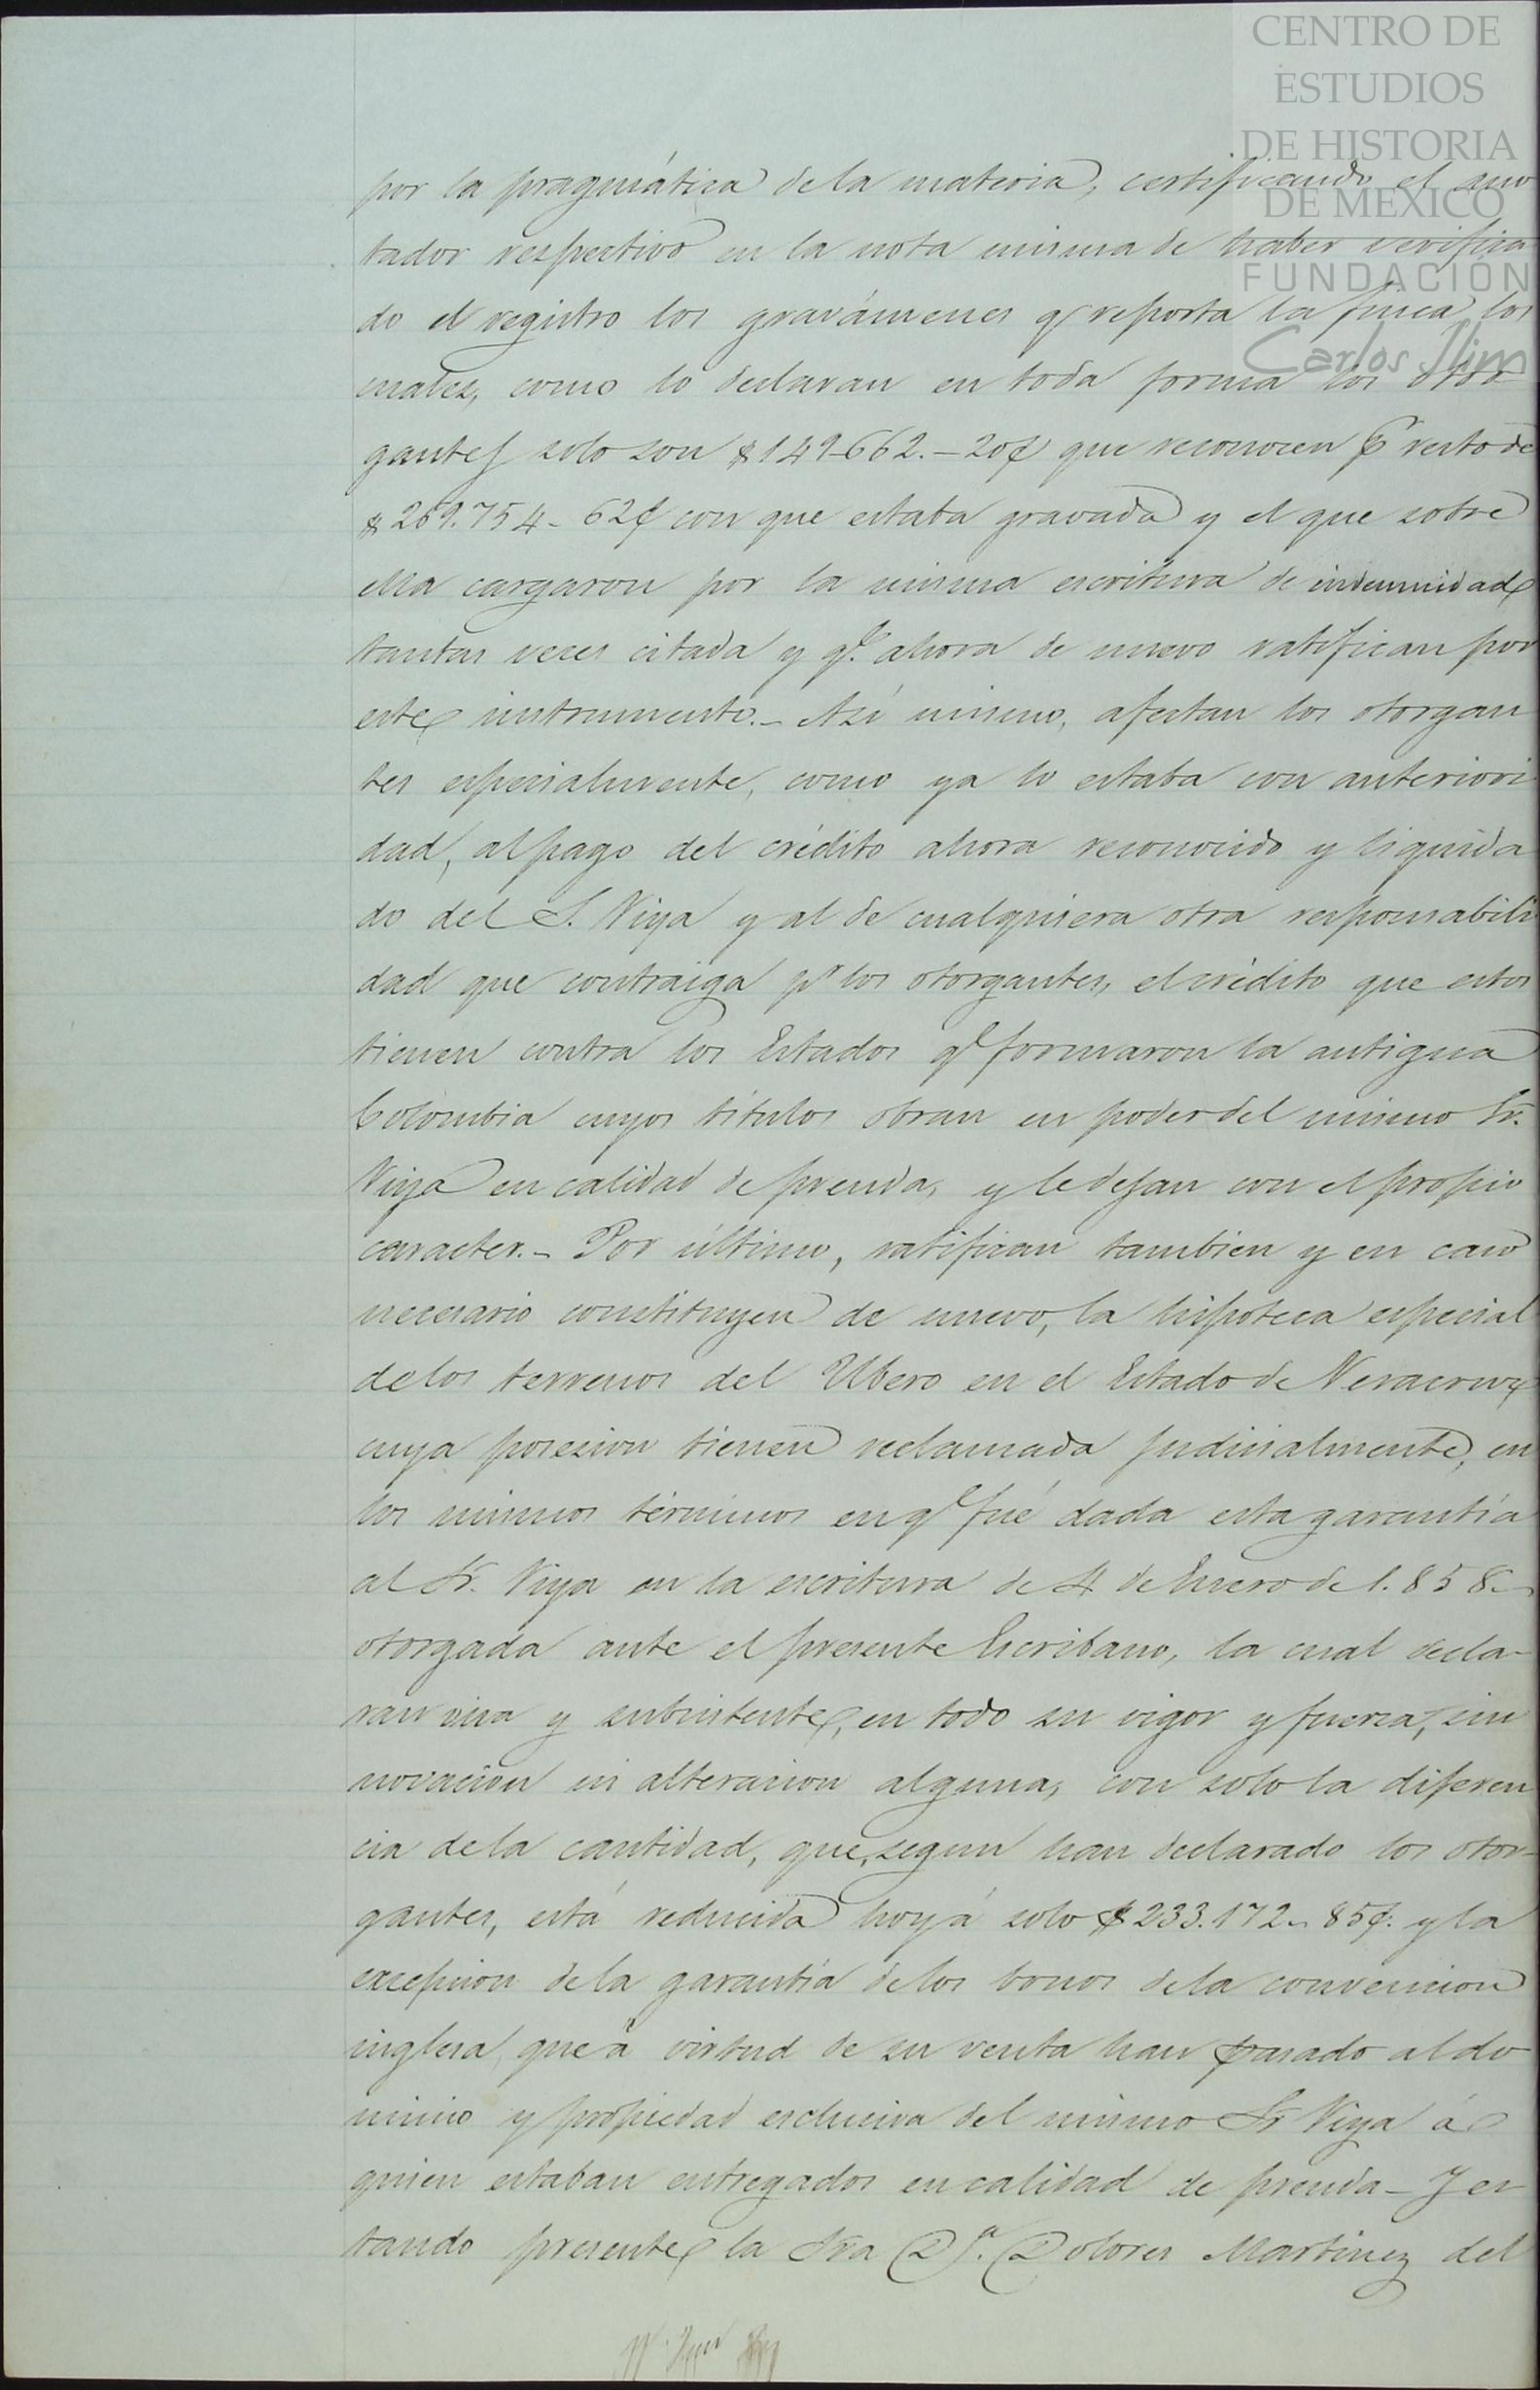 CENTRO DE
ESTUDIOS
DE HISTORIA
DE MEXICO
FUNDACIÓN
Carlos Slim
por la pragmática de la materia, certificando el ano
tador respectivo en la nota misma de haber verifica
do el registro los gravámenes q reporta la finca, los
cuales, como lo declaran en toda forma los otor
gantes solo son $149.662.-20¢ que reconocen pr resto de
$269.754-62¢ con que estaba gravada y el que sobre
ella cargaron por la misma escritura de indemnidad
tantas veces citada y qe. ahora de nuevo ratifican por
este instrumento.- Así mismo, afectan los otorgan
tes especialmente, como ya lo estaba con anteriori
dad, al pago del crédito ahora reconocido y liquida
do del S. Viya y al de cualquiera otra responsabili
dad que contraiga pr los otorgantes, el crédito que estos
tienen contra los Estados qe formaron la antigua
Colombia cuyos títulos obran en poder del mismo Sr.
Viya en calidad de prenda, y le dejan con el propio
caracter.- Por último, ratifican tambien y en caso
necesario constituyen de nuevo, la hipoteca especial
de los terrenos del Ubero en el Estado de Veracruz
cuya posesion tienen reclamada judicialmente, en
los mismos términos en qe fué dada esta garantía
al Sr. Viya en la escritura de 4 de Enero de 1.858.-
otorgada ante el presente Escribano, la cual decla-
ran viva y subsistente, en todo su vigor y fuerza, sin
novacion ni alteracion alguna, con solo la diferen
cia de la cantidad, que, segun han declarado los otor-
gantes, está reducida hoy á solo $233.172.-85¢. y la
excepcion de la garantía de los bonos de la convencion
inglesa, que á virtud de su venta han pasado al do
minio y propiedad esclusiva del mismo Sr Viya á
quien estaban entregados en calidad de prenda - Y es
tando presente la Sra Da. Dolores Martinez del